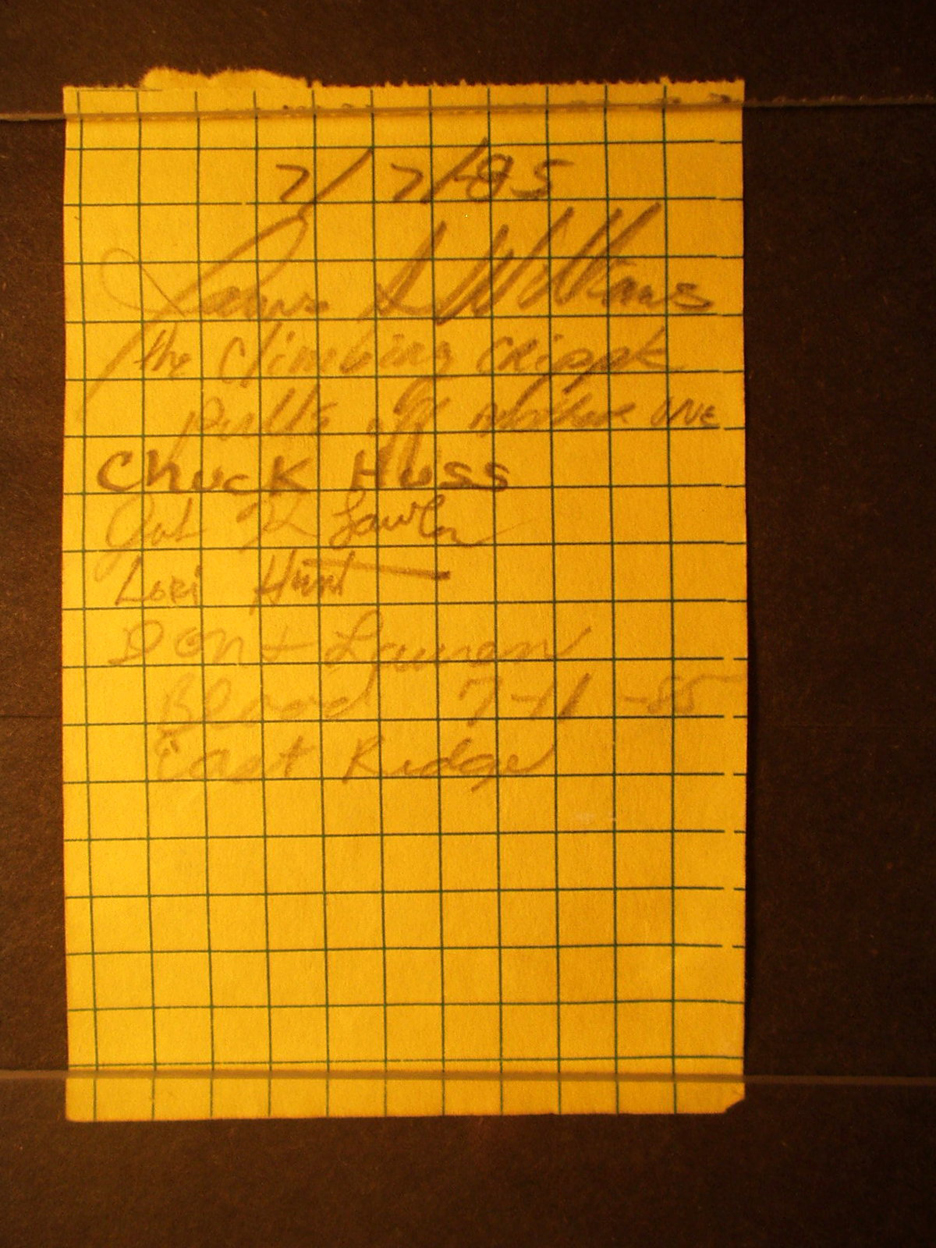 7/7/85
James D Williams
the climbing cripple
pulls off another ONE
Chuck Huss
Lawler
Lori Hunt
Don + Lauren
Blood 7-11-85
East Ridge